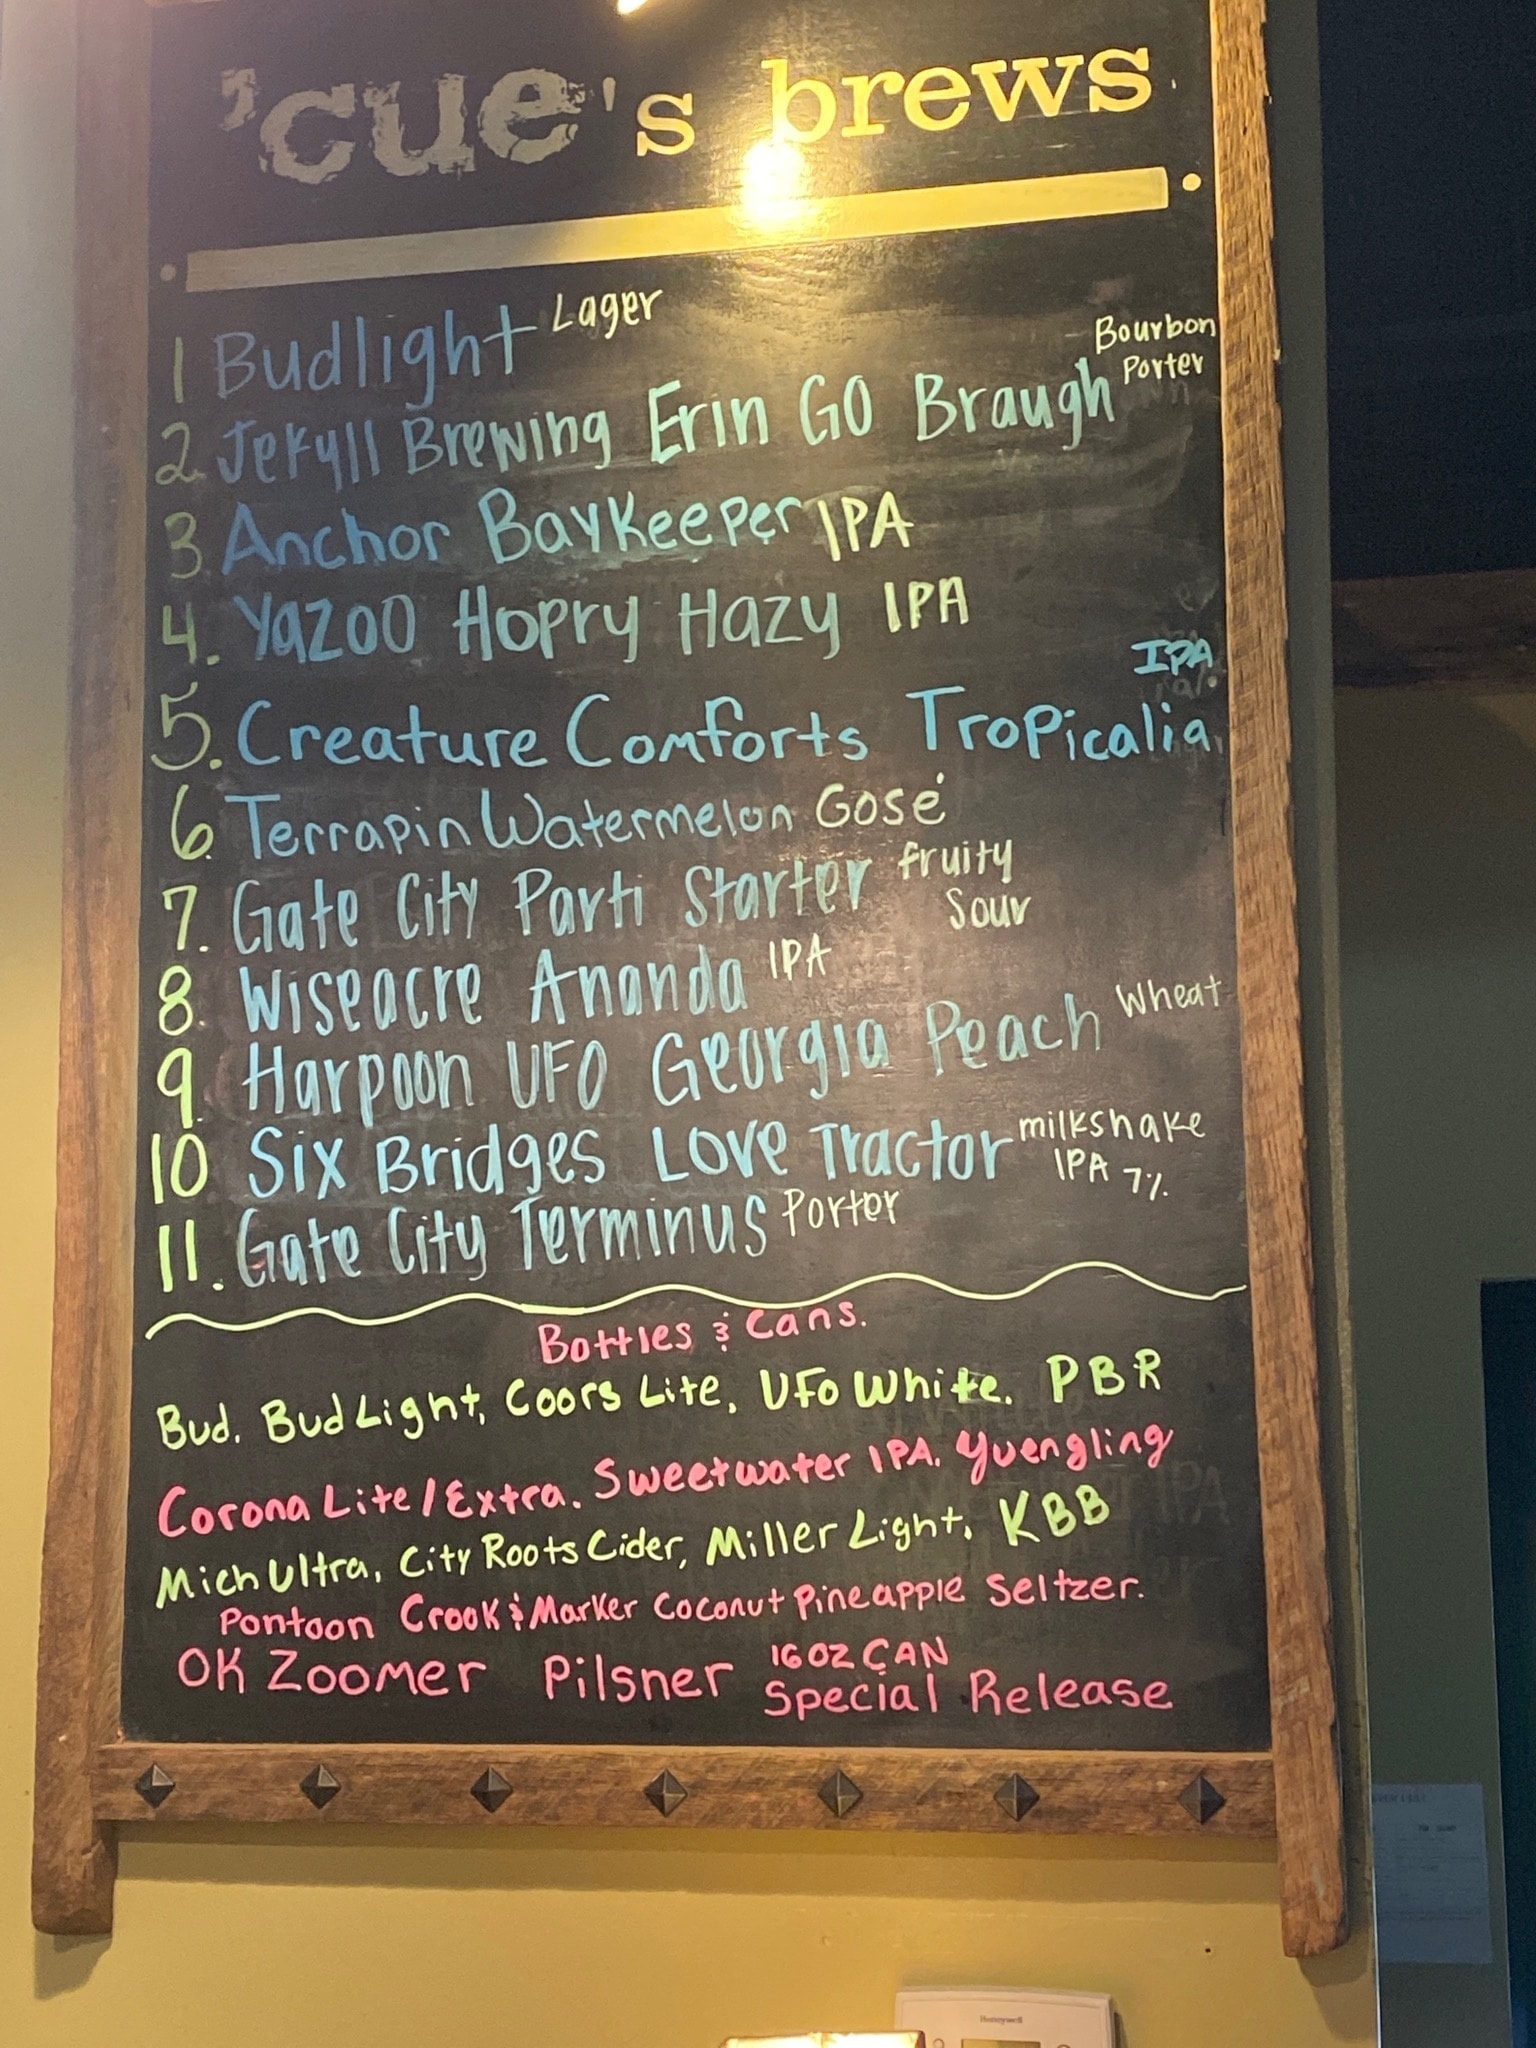 'cue's brews
1 Budlight Lager
2. Jekyll Brewing Erin GO Braugh Bourbon Porter
3. Anchor BayKeeper IPA
4. Yazoo Hopry Hazy IPA
5. Creature Comforts Tropicalia IPA
6. Terrapin Watermelon Gosé
7. Gate City Parti Starter fruity Sour
8. Wiseacre Ananda IPA
9. Harpoon UFO Georgia Peach Wheat
10 Six Bridges Love Tractor milkshake IPA 7%
11. Gate City Terminus Porter
Bottles & Cans.
Bud. Bud Light, Coors Lite, UFO White. PBR
Corona Lite/Extra. Sweetwater IPA. Yuengling
Mich Ultra, City Roots Cider, Miller Light, KBB
Pontoon Crook & Marker Coconut Pineapple Seltzer.
OK Zoomer Pilsner 16oz CAN Special Release
Honeywell